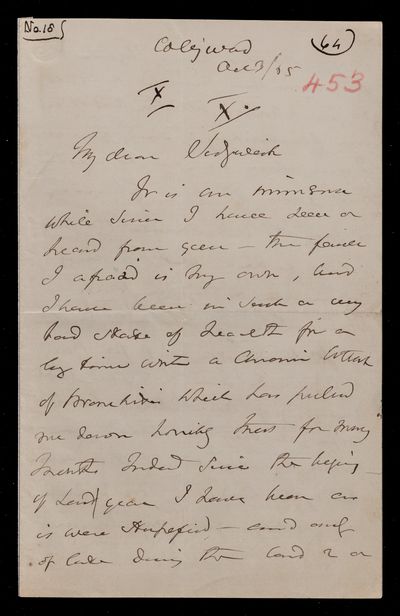 No. 18
(64)
Collingwood
Oct 3/65
453
X X.
My dear Sedgwick
It is an immense
while since I have seen or
heard from you – the fault
I afraid is my own, and
I have been in such a very
bad state of health for a
long time with a Chronic attack
of Bronchitis which has pulled
me down horribly for many
Months Indeed Since the beging
of last year I have been as
it were Stupefied – and only
of late during the last 2 or